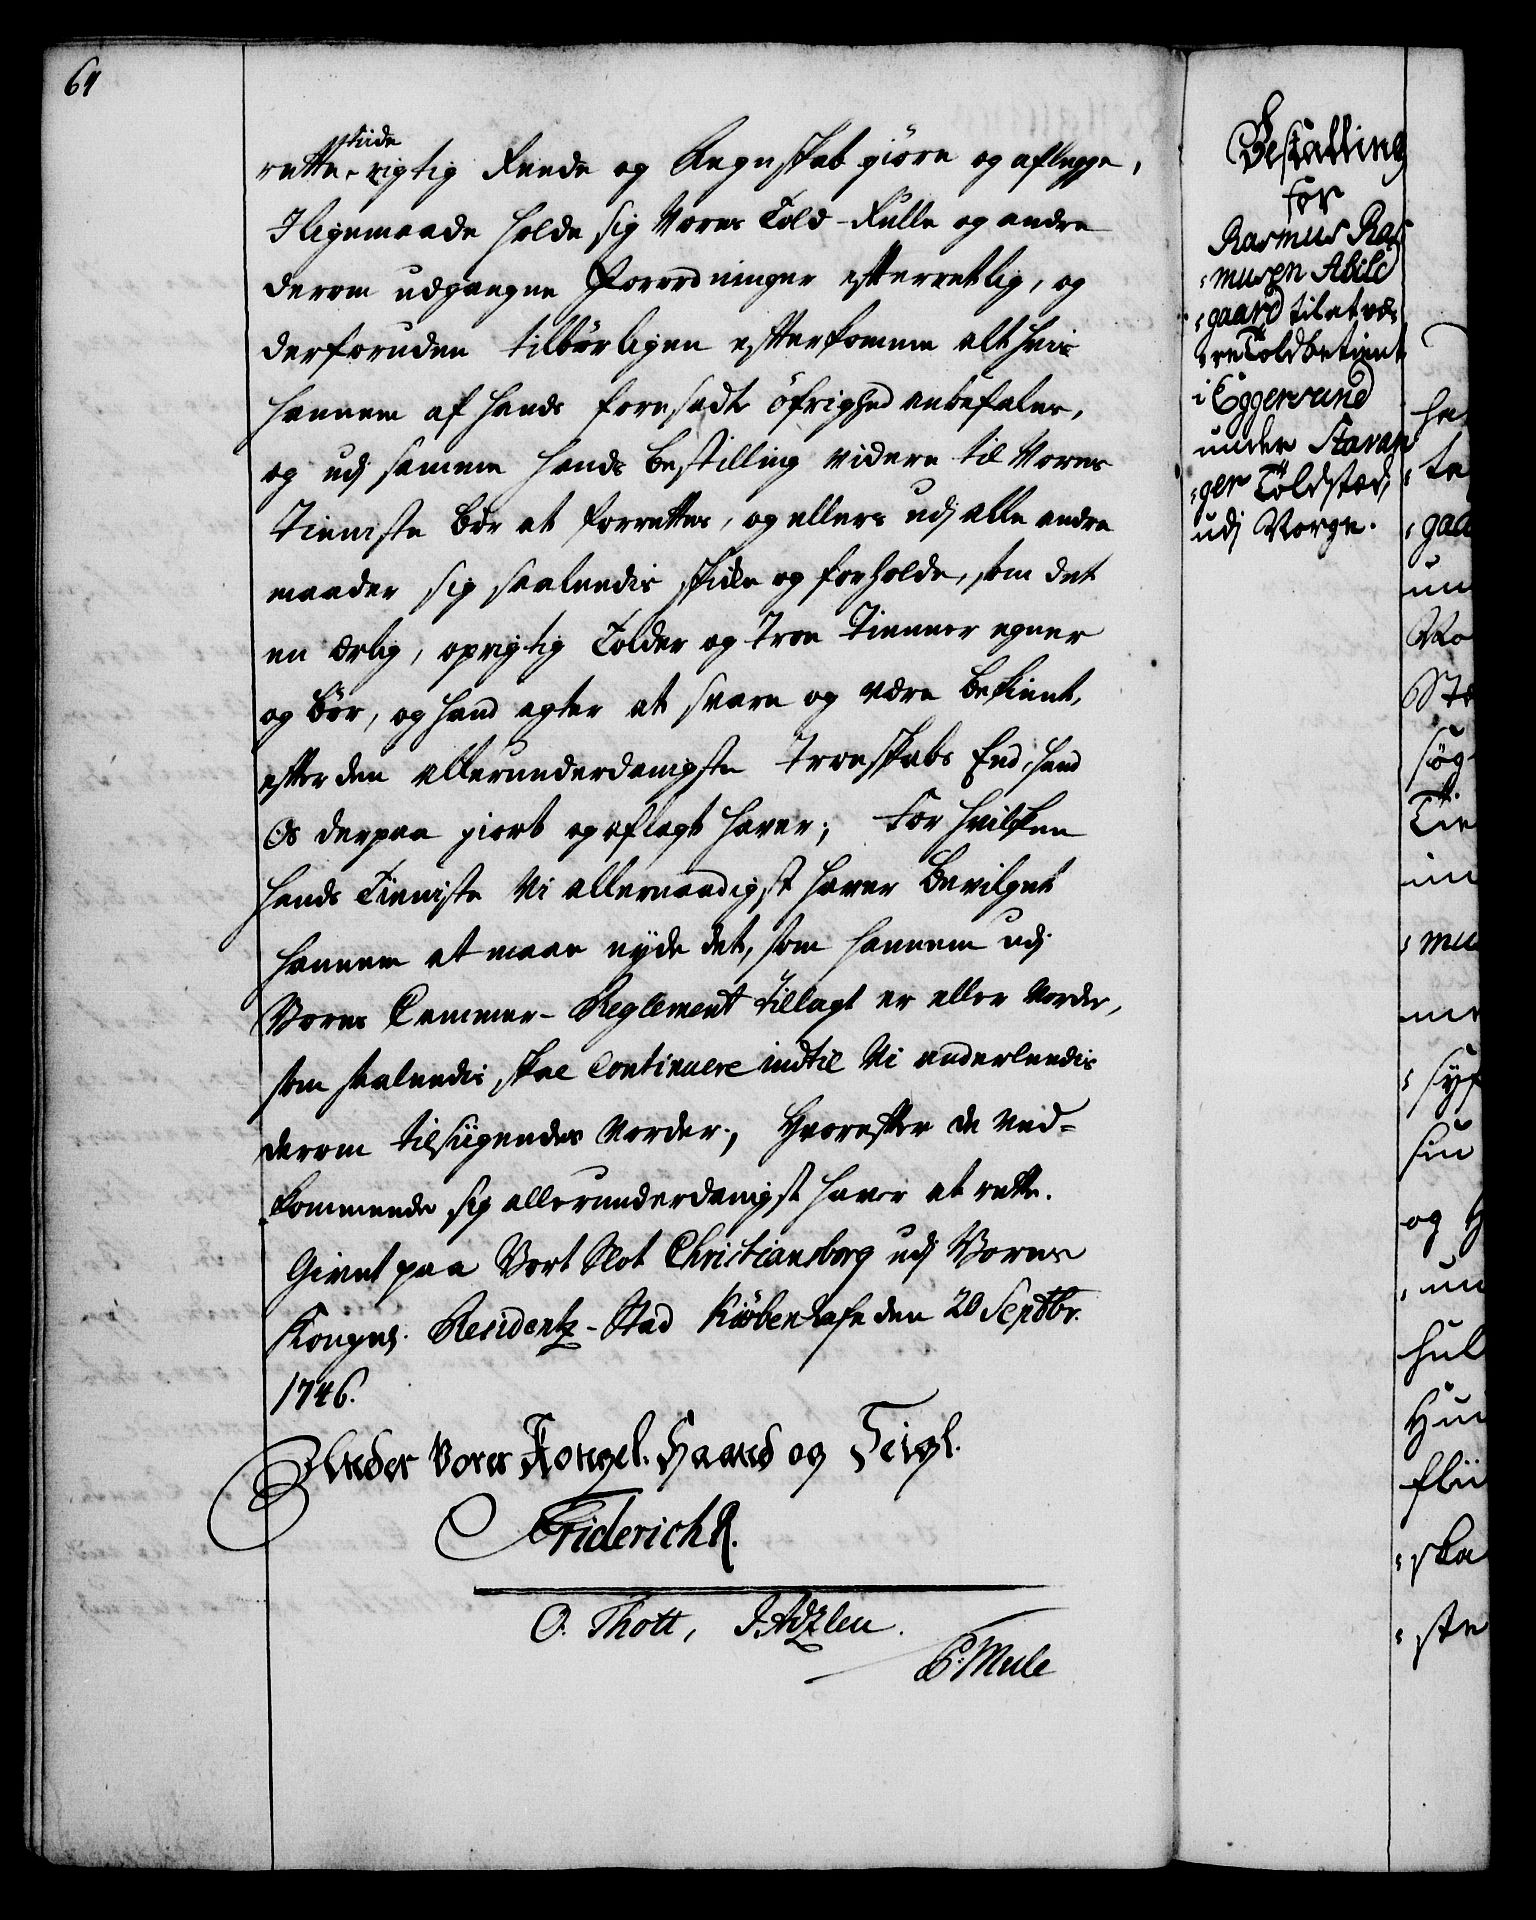 64
rette tiide rigtig Reede og Regnskab giøre og aflegge,
I ligemaade holde sig Vores Told-Rulle og andre
derom udgangne Forordninger efterretlig, og
derforuden tilbørligen efterkomme alt hvis
hannem af hands foresadte øfrighed anbefales,
og udj samme hands bestilling videre til Vores
Tieniste bør at forrettes, og ellers udj alle andre
maader sig saaleedis skicke og forholde, som det
en ærlig, oprigtig Tolder og Troe Tienner egner
og bør, og hand agter at svare og være bekiendt,
efter den allerunderdanigste Troeskabs Eed, hand
Os derpaa giort og aflagt haver; For hvilcken
hands Tieniste Vi allernaadigst haver bevilget
hannem at maae nyde det, som hannem udj
Vores Cammer-Reglement tillagt er eller vorder,
som saaleedis skal Continuere indtil Vi anderleedis
derom tilsiigendes vorder; Hvorefter de Ved-
kommende sig allerunderdanigst haver at rette.
Givet paa Vort Slot Christiansborg udj Vores
Kongel. Residentz-Stad Kiøbenhafn den 20 Septbr.
1746.
Under Vores Kongel. Haand og Seigl.
Friderich R.
O. Thott, 
P. Mule
Bestalling
for
Rasmus Ras
musen Abild
gaard til at væ
re Toldbetient
i Eggersund
under Stavan
ger Toldsted,
udj Norge.